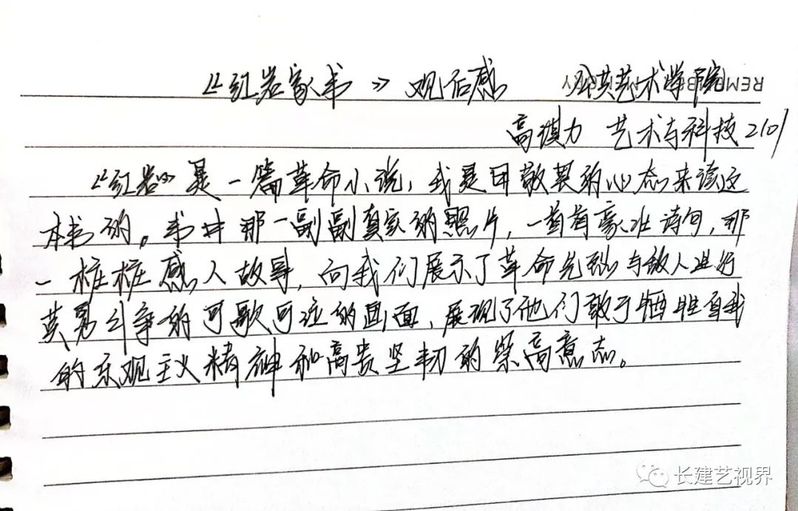 《红岩家书》观后感 公共艺术学院
REMEMBER
高琪力 艺术与科技2101
《红岩》是一篇革命小说，我是用敬畏的心态来读这
本书的。书中那一副副真实的照片，一首首豪壮诗句，那
一桩桩感人故事，向我们展示了革命先烈与敌人进行
英勇斗争的可歌可泣的画面，展现了他们敢于牺牲自我
的乐观主义精神和高贵坚韧的崇高意志。
长建艺视界